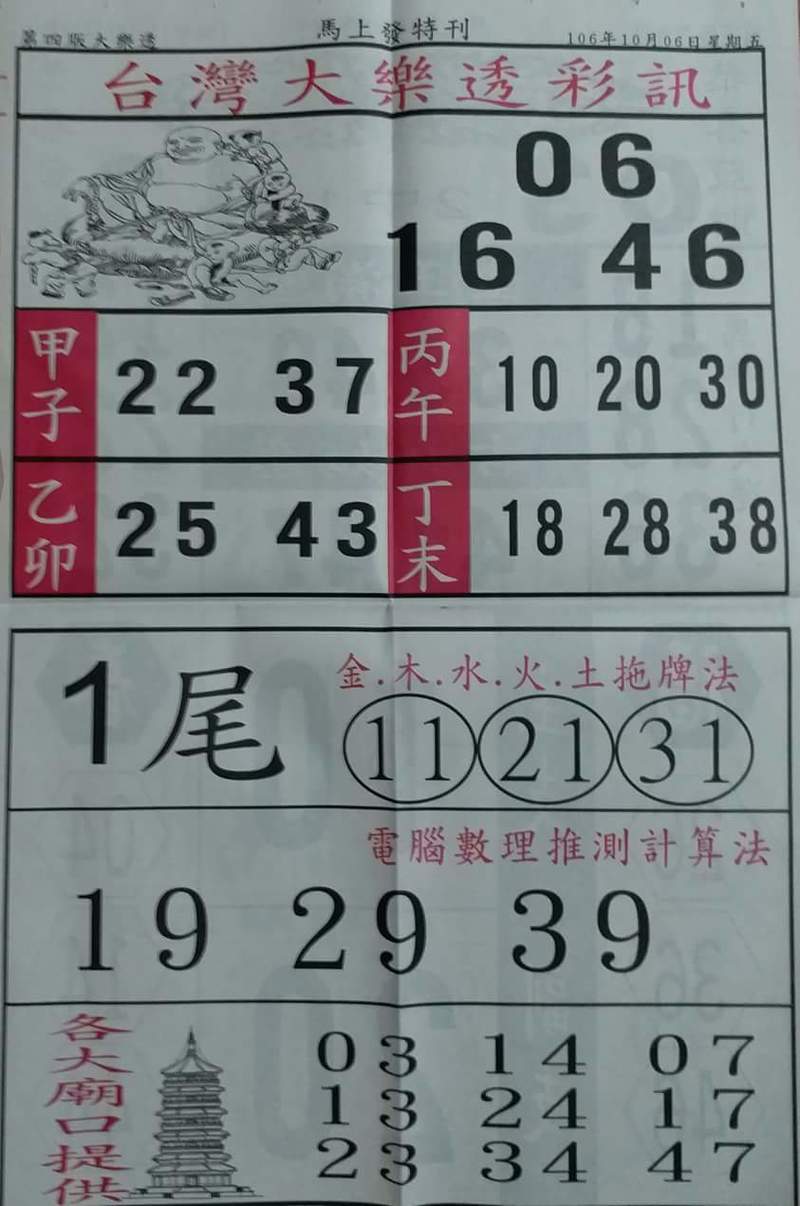 第四版大樂透 馬上發特刊 106年10月06日星期五
台灣大樂透彩訊
06
16 46
甲子 22 37 丙午 10 20 30
乙卯 25 43 丁末 18 28 38
金.木.水.火.土拖牌法
1尾 11 21 31
電腦數理推測計算法
19 29 39
各大廟口提供
03 14 07
13 24 17
23 34 47